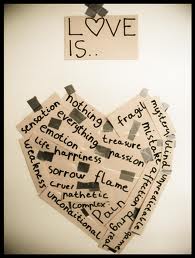 LOVE
IS..
nothing
sensation
everything
emotion
treasure
life
happiness
passion
weakness
sorrow
flame
cruel
pathetic
complex
unconditional
pain
fragile
mystery
blind
mistake
affection
unpredictable
drug